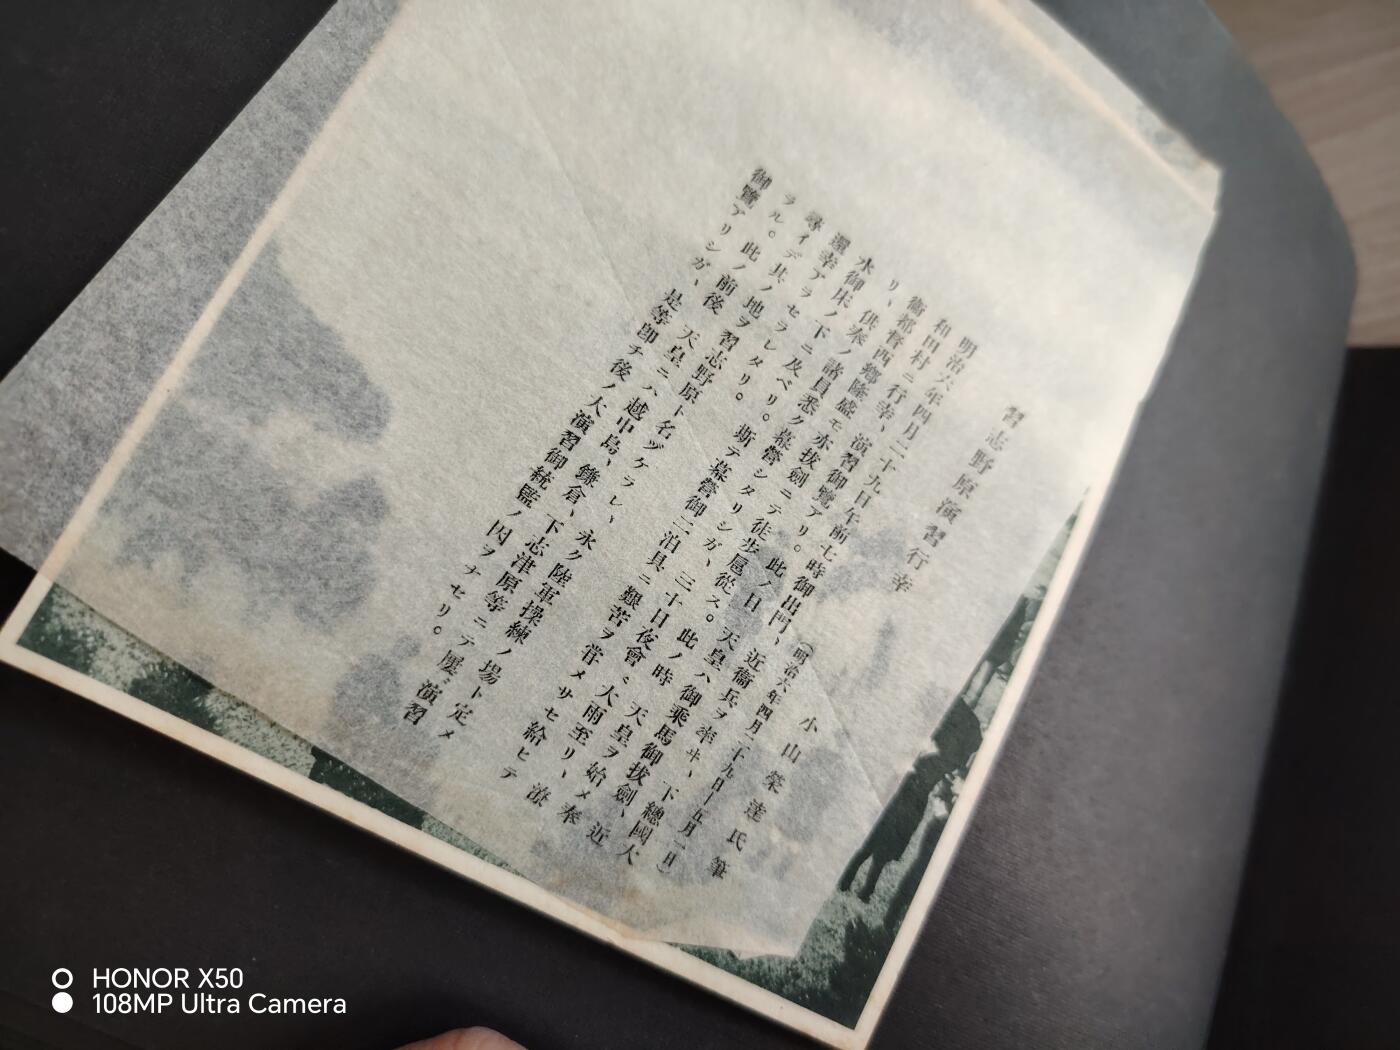 習志野原演習行幸
小山榮達氏筆
(明治六年四月二十九日―五月一日)
明治六年四月二十九日午前七時御出門、近衞兵ヲ率ヰ、下總國大
和田村ニ行幸、演習御覽アリ。此ノ日 天皇ハ御乘馬御拔劍、近
衞都督西鄕隆盛モ亦拔劍ニテ徒步扈從ス。此ノ時 天皇ヲ始メ奉
リ、供奉ノ諸員悉ク幕營シタリシガ、三十日夜會〻大雨至リ、潦
水御床ノ下ニ及ベリ。斯テ幕營御二泊具ニ艱苦ヲ甞メサセ給ヒテ
還幸アラセラレタリ。
尋イデ其ノ地ヲ習志野原ト名ヅケラレ、永ク陸軍操練ノ場ト定メ
ラル。此ノ前後 天皇ニハ越中島、鎌倉、下志津原等ニテ屢〻演習
御覽アリシガ、是等卽チ後ノ大演習御統監ノ因ヲナセリ。
HONOR X50
108MP Ultra Camera